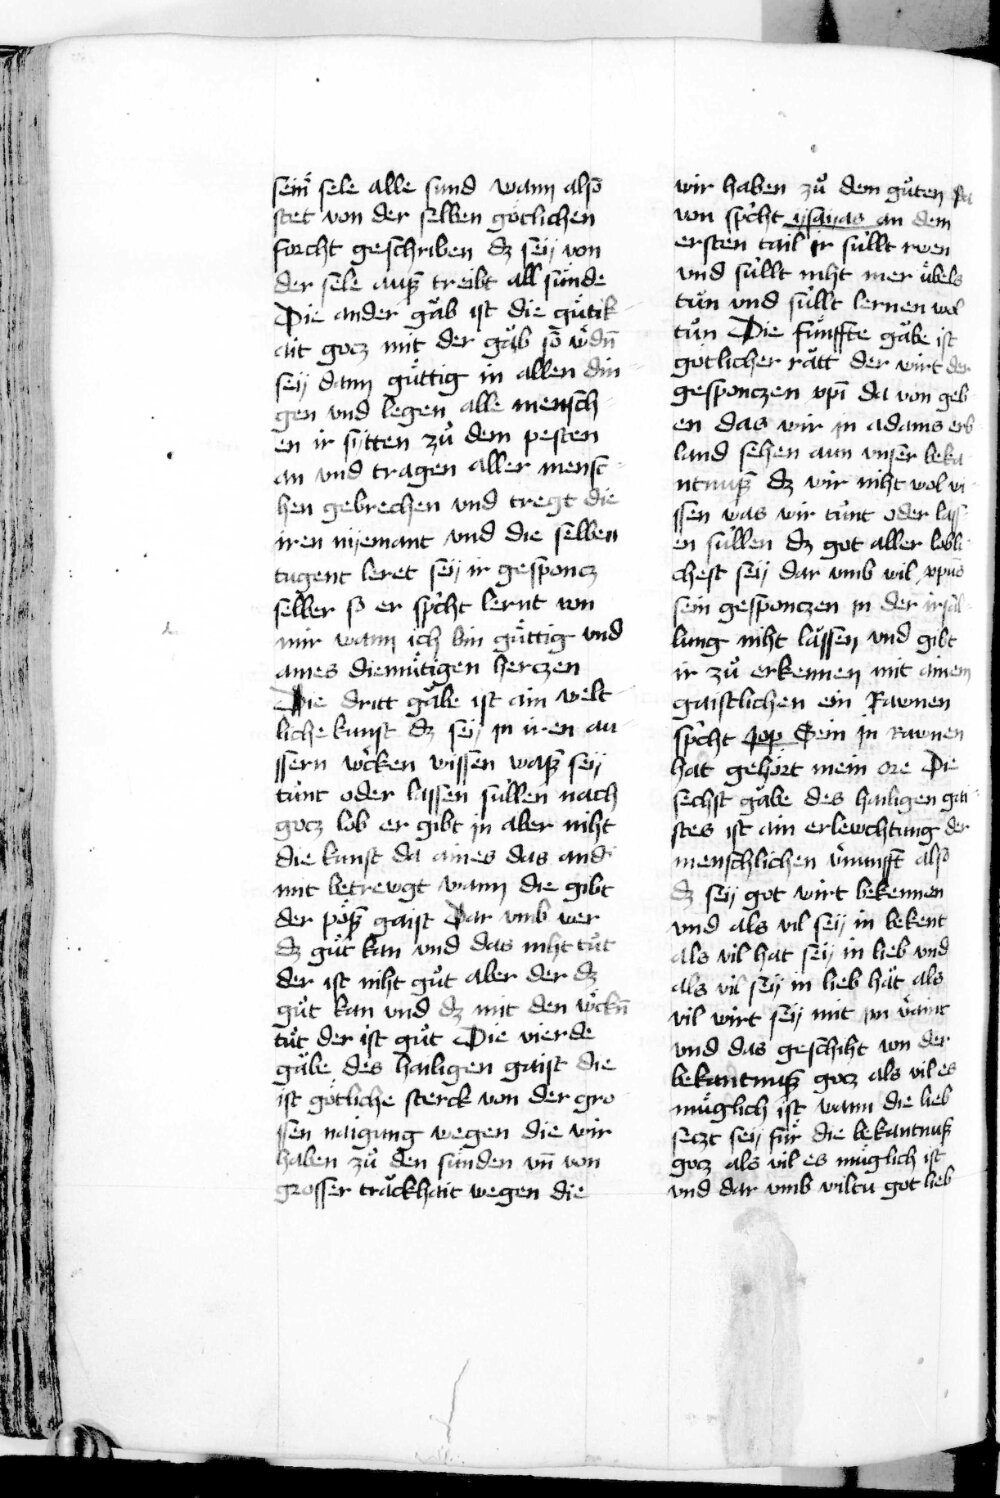 sein̄ sele alle sund wann also
stet von der selben götlichen
forcht geschriben dz seÿ von
der sele auß treibt all sünde
Die ander gäb ist die gütik
ait gocz mit der gäb so w̓dn̄
seÿ dann güttig in allen din
gen vnd legen alle mensch
en ir sÿtten zů dem pesten
an vnd tragen aller mensc
hen gebrechen vnd tregt die
iren nÿemant vnd die selben
tugent leret seÿ ir gesponcz
selber so er spͥcht lernt von
mir wann ich bin güttig vnd
aines diemütigen herczen
Die dritt gäbe ist ain welt
liche kunst dz seÿ in iren au
ssern w̓cken wissen waß seÿ
tünt oder lassen süllen nach
gocz lob er gibt in aber niht
die kunst da aines das and̓
mit betrewgt wann die gibt
der pöß gaist Dar vmb wer
dz gůt kan vnd das niht tůt
der ist niht gůt aber der dz
gůt kan vnd dz mit den w̓ckn̄
tůt der ist gůt Die vierde
gäbe des hailigen gaist die
ist götliche sterck von der gro
ssen naigung wegen die wir
haben zů den sünden vn̄ von
grosser träckhait wegen die
wir haben zů dem gůten da
von spͥcht ÿsaÿas an dem
ersten tail ir süllt rwen
vnd süllt niht mer übels
tůn vnd süllt lernen wol
tůn Die fünffte gäbe ist
götlicher rätt der wirt der
gesponczen xpī da von geb
en das wir in adams erb
land sehen aun vnser beka
ntnuß dz wir niht wol wi
ssen was wir tünt oder lass
en süllen dz got aller lobli
chest seÿ dar vmb wil xpūs
sein gesponczen in der irsäl
lung niht lässen vnd gibt
ir zů erkennen mit ainem
gaistlichen ein Rawnen
spͥcht Jop Sein in rawnen
hat gehört mein ore Die
sechst gäbe des hailigen gai
stes ist ain erlewchtung der
menschlichen v̓nunfft also
dz seÿ got wirt bekennen
vnd als vil seÿ in bekent
als vil hat seÿ in lieb vnd
als vil seÿ in lieb hät als
vil wirt seÿ mit im v̓aint
vnd das geschiht von der
bekantnuß gocz als vil es
müglich ist wann die lieb
seczt seÿ für die bekantnuß
gocz als vil es müglich ist
vnd dar vmb wiltu got lieb